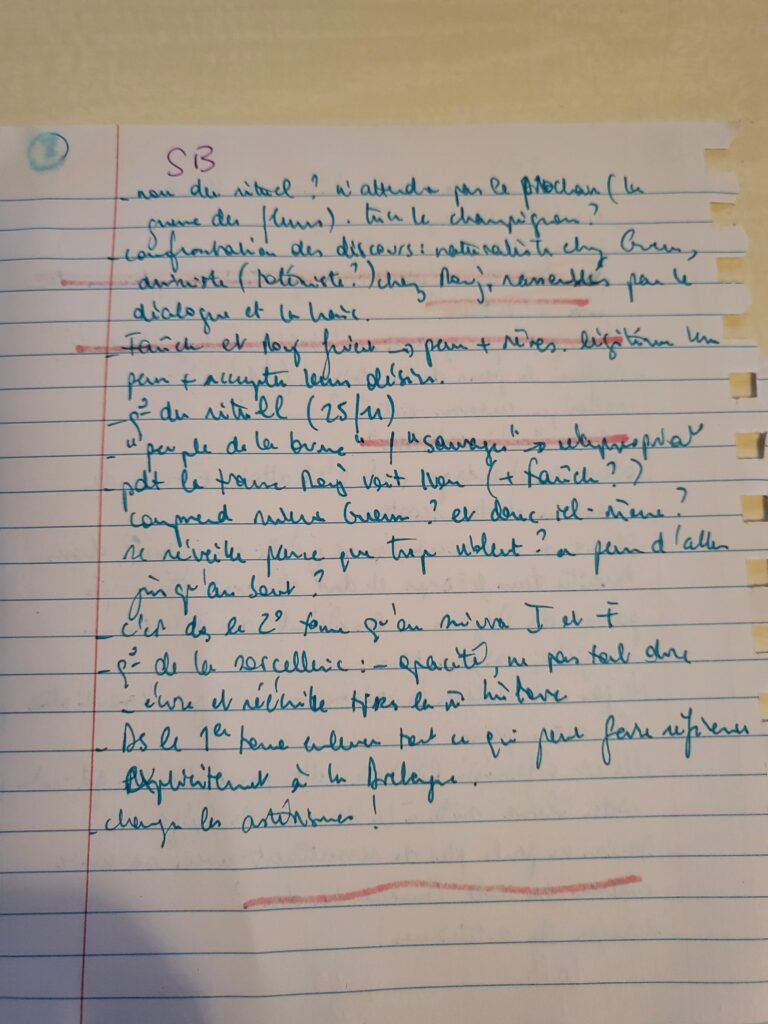 SB
- nom du rituel ? n'attendre pas le prochain (la
guerre des fleurs). tuer le champignon ?
- confrontation des discours : naturaliste chez Gwen,
animiste (totémiste ?) chez rassemblés par le
dialogue et la haine.
- Fañch et → peur + rêves. légitimer leur
peur + accepter leurs désirs.
- du rituel (25/11)
- "peuple de la brume" / "sauvages" →
- pdt la transe voit (+ Fañch ?)
comprend mieux Gwenn ? et donc iel-même ?
se réveille parce que trop violent ? a peur d'aller
jusqu'au bout ?
- c'est ds le 2° tome qu'on suivra J et F
- de la sorcellerie : - opacité, ne pas tout dire
- écrire et réécrire tjrs la m̂ histoire
- Ds le 1er tome enlever tout ce qui peut faire référence
explicitement à la Bretagne.
- changer les astérismes !